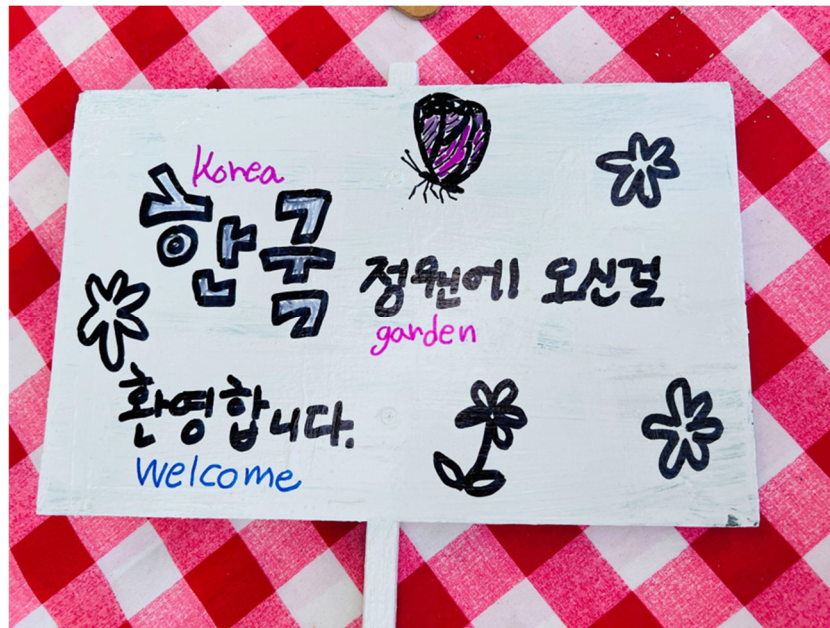 Korea
한국 정원에 오신걸
garden
환영합니다.
Welcome